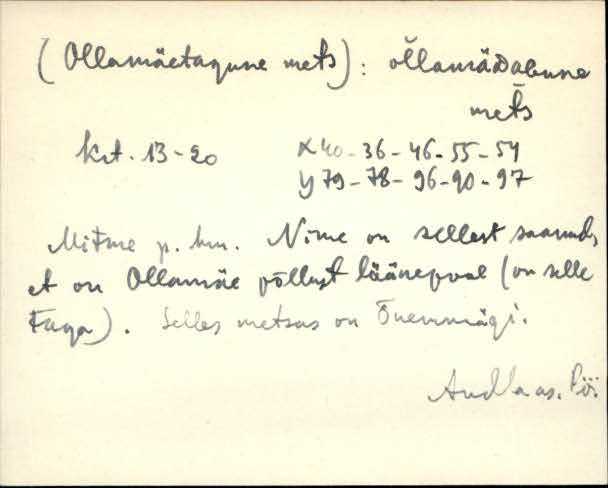 (Ollamäetagune mets): õllamäDaɢune
mets
krt. 13-20 X 40-36-46-55-54
Y 79-78-96-90-97
Mitme p. hm. Nime on sellest saanud,
et on Ollamäe põllust läänepool (on selle
taga). Selles metsas on